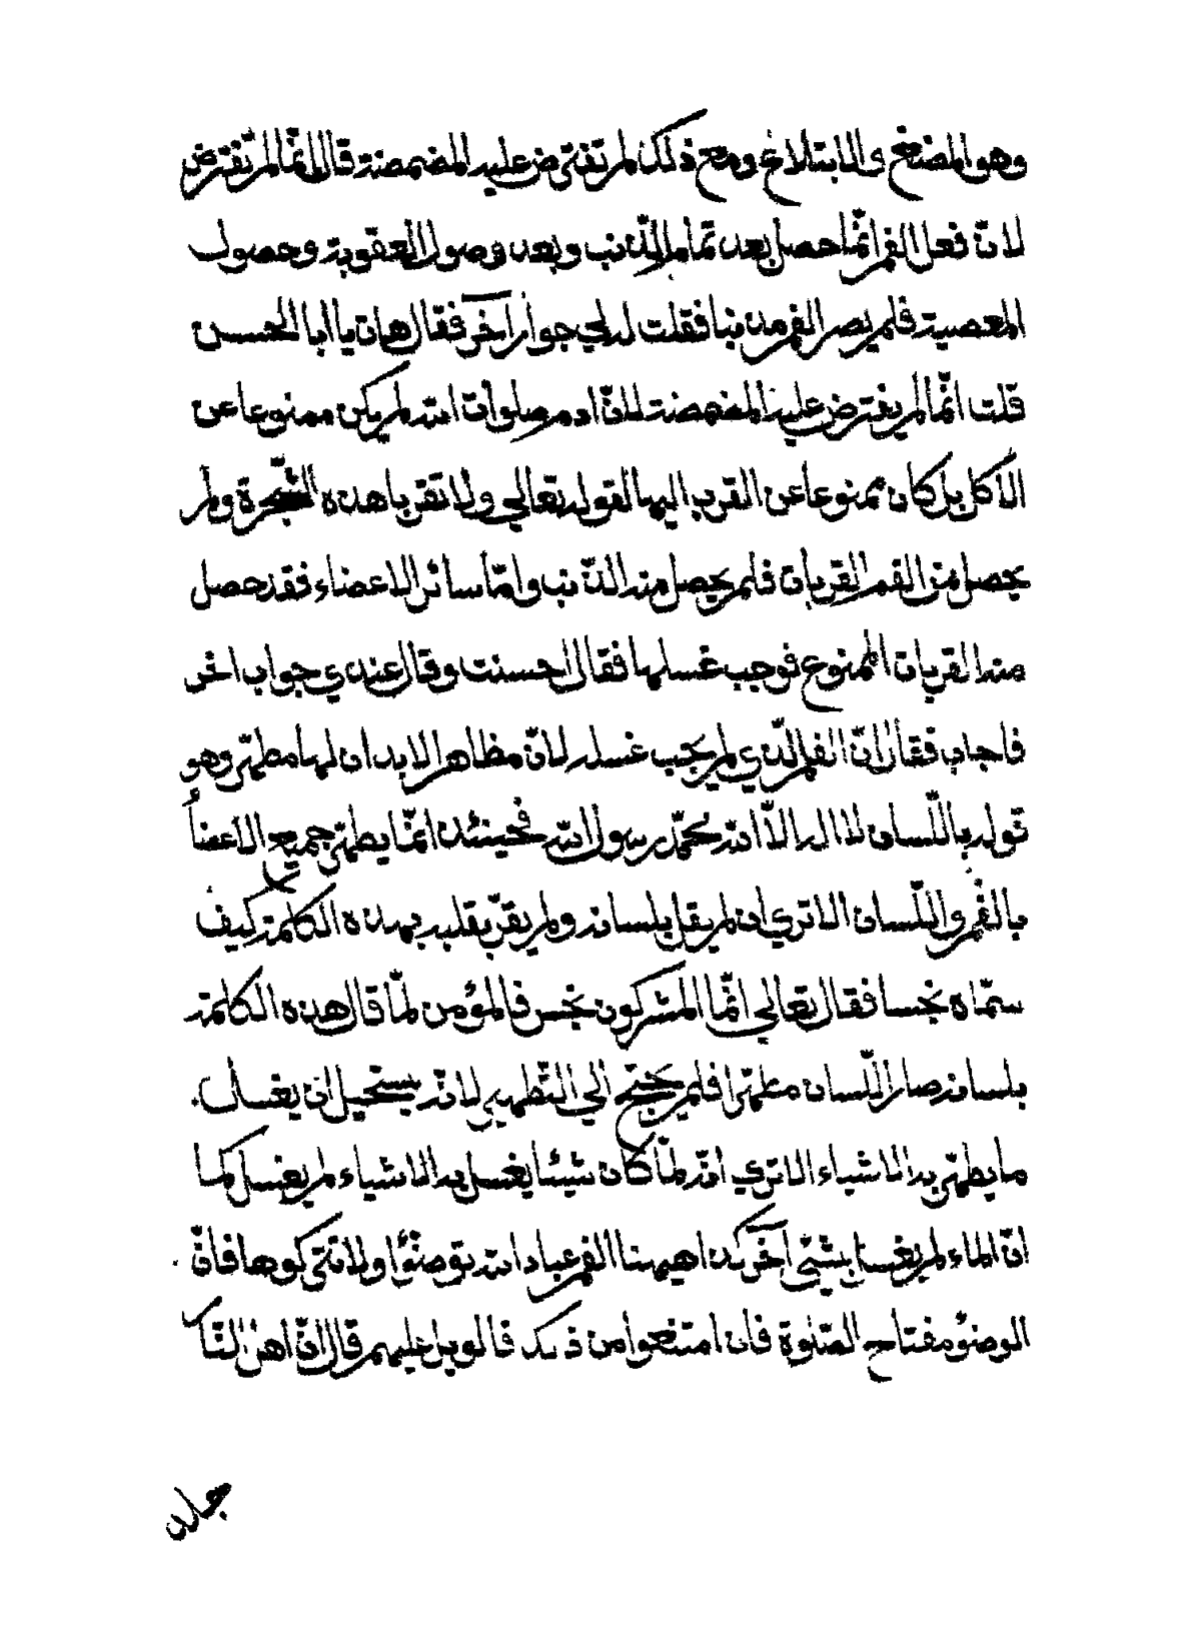 وهو المضغ والابتلاع ومع ذلك لم تفترض عليه المضمضة قال انّما لم تفترض
لانّ فعل الفم انّما حصل بعد تمام الذّنب وبعد وصول العقوبة وحصول
المعصية فلم يصر الفم مذنبا فقلت له لي جواب آخر فقال هات يا ابا الحسن
قلت انّما لم يفترض عليه المضمضة لانّ ادم صلوات الله لم يكن ممنوعا عن
الأكل بل كان ممنوعا عن القرب اليها لقوله تعالي ولا تقربا هذه الشّجرة ولم
يحصل من الفم القربان فلم يحصل منه الذّنب وامّا سائر الاعضاء فقد حصل
منه القربان الممنوع فوجب غسلها فقال احسنت وقال عندي جواب اخر
فاجاب فقال انّ الفم الّذي لم يجب غسله لانّ مظاهر الابدان لها مطهّر وهو
قوله باللّسان لا اله الاّ الله محمّد رسول الله فحينئذ انّما يطهّر جميع الاعضاُ
بالفم واللّسان الا تري ان لم يقل بلسانه ولم يقرّ بقلبه بهذه الكلمة كيف
سمّاه نجسا فقال تعالي انّما المشركون نجس فالمؤمن لمّا قال هذه الكلمة
بلسانه صار اللّسان مطهّرا فلم يحتج الي التّطهير لانّه يستحيل ان يغسل
ما يطهّر به الاشياء الا تري انّه لمّا كان شيئا يغسل به الاشياء لم يغسل كما
انّ الماء لم يغسل بشيّ آخر كذا هيهنا الفم عباد الله توضّؤا ولا تتركوها فانّ
الوضوُ مفتاح الصّلوة فان امتنعوا من ذلك فالويل عليهم قال انّ اهل النّا